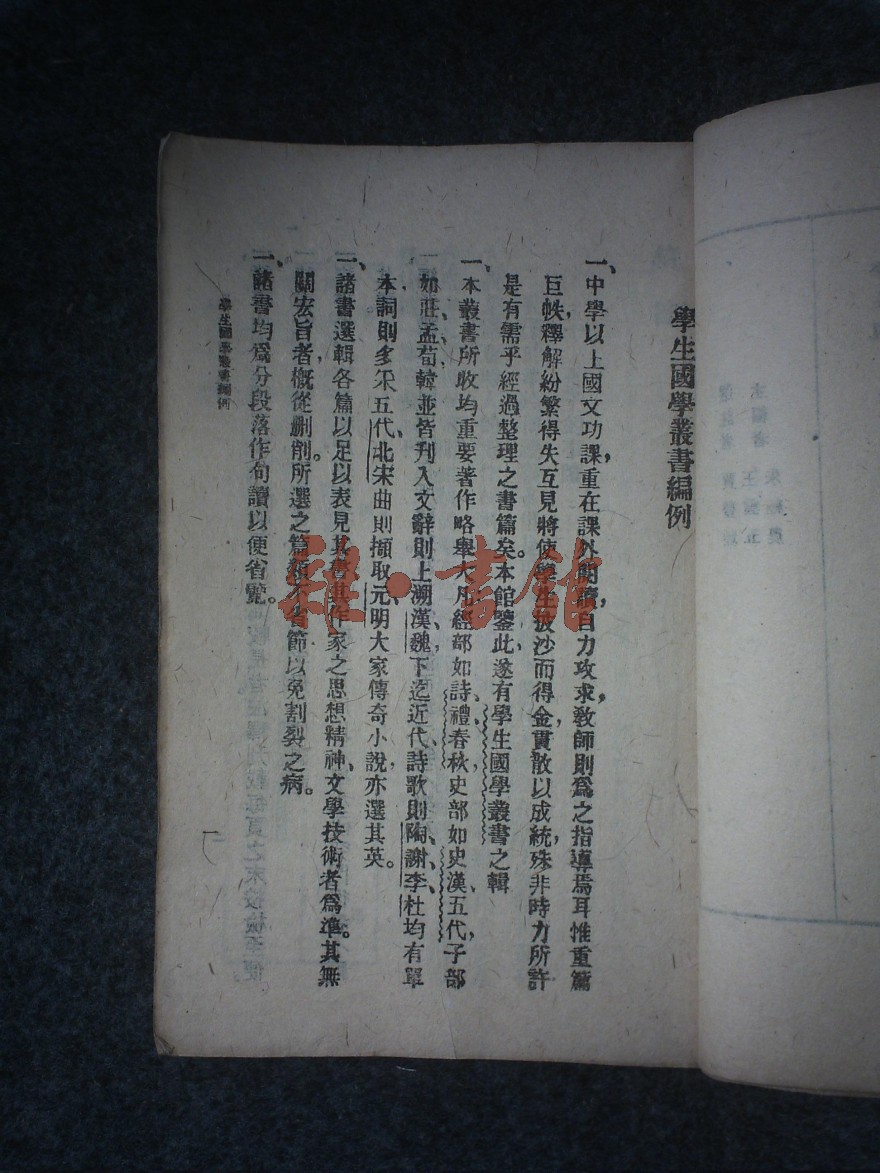 學生國學叢書編例
一、中學以上國文功課，重在課外閱讀，自力攻求，教師則爲之指導焉耳。惟重篇
巨帙，釋解紛繁，得失互見，將使學生披沙而得金，貫散以成統，殊非時力所許，
是有需乎經過整理之書篇矣。本館鑒此，遂有學生國學叢書之輯
一、本叢書所收，均重要著作，略舉大凡；經部如詩、禮、春秋，史部如史、漢、五代，子部
如莊、孟、荀、韓，並皆刊入；文辭則上溯漢、魏，下迄近代；詩歌則陶、謝、李、杜，均有單
本；詞則多采五代、北宋；曲則擷取元、明大家；傳奇、小說，亦選其英。
一、諸書選輯各篇，以足以表見其書、其作家之思想精神、文學技術者爲準。其無
關宏旨者，概從刪削。所選之篇類不省節，以免割裂之病。
一、諸書均爲分段落，作句讀，以便省覽。
學生國學叢書編例
雜·書館